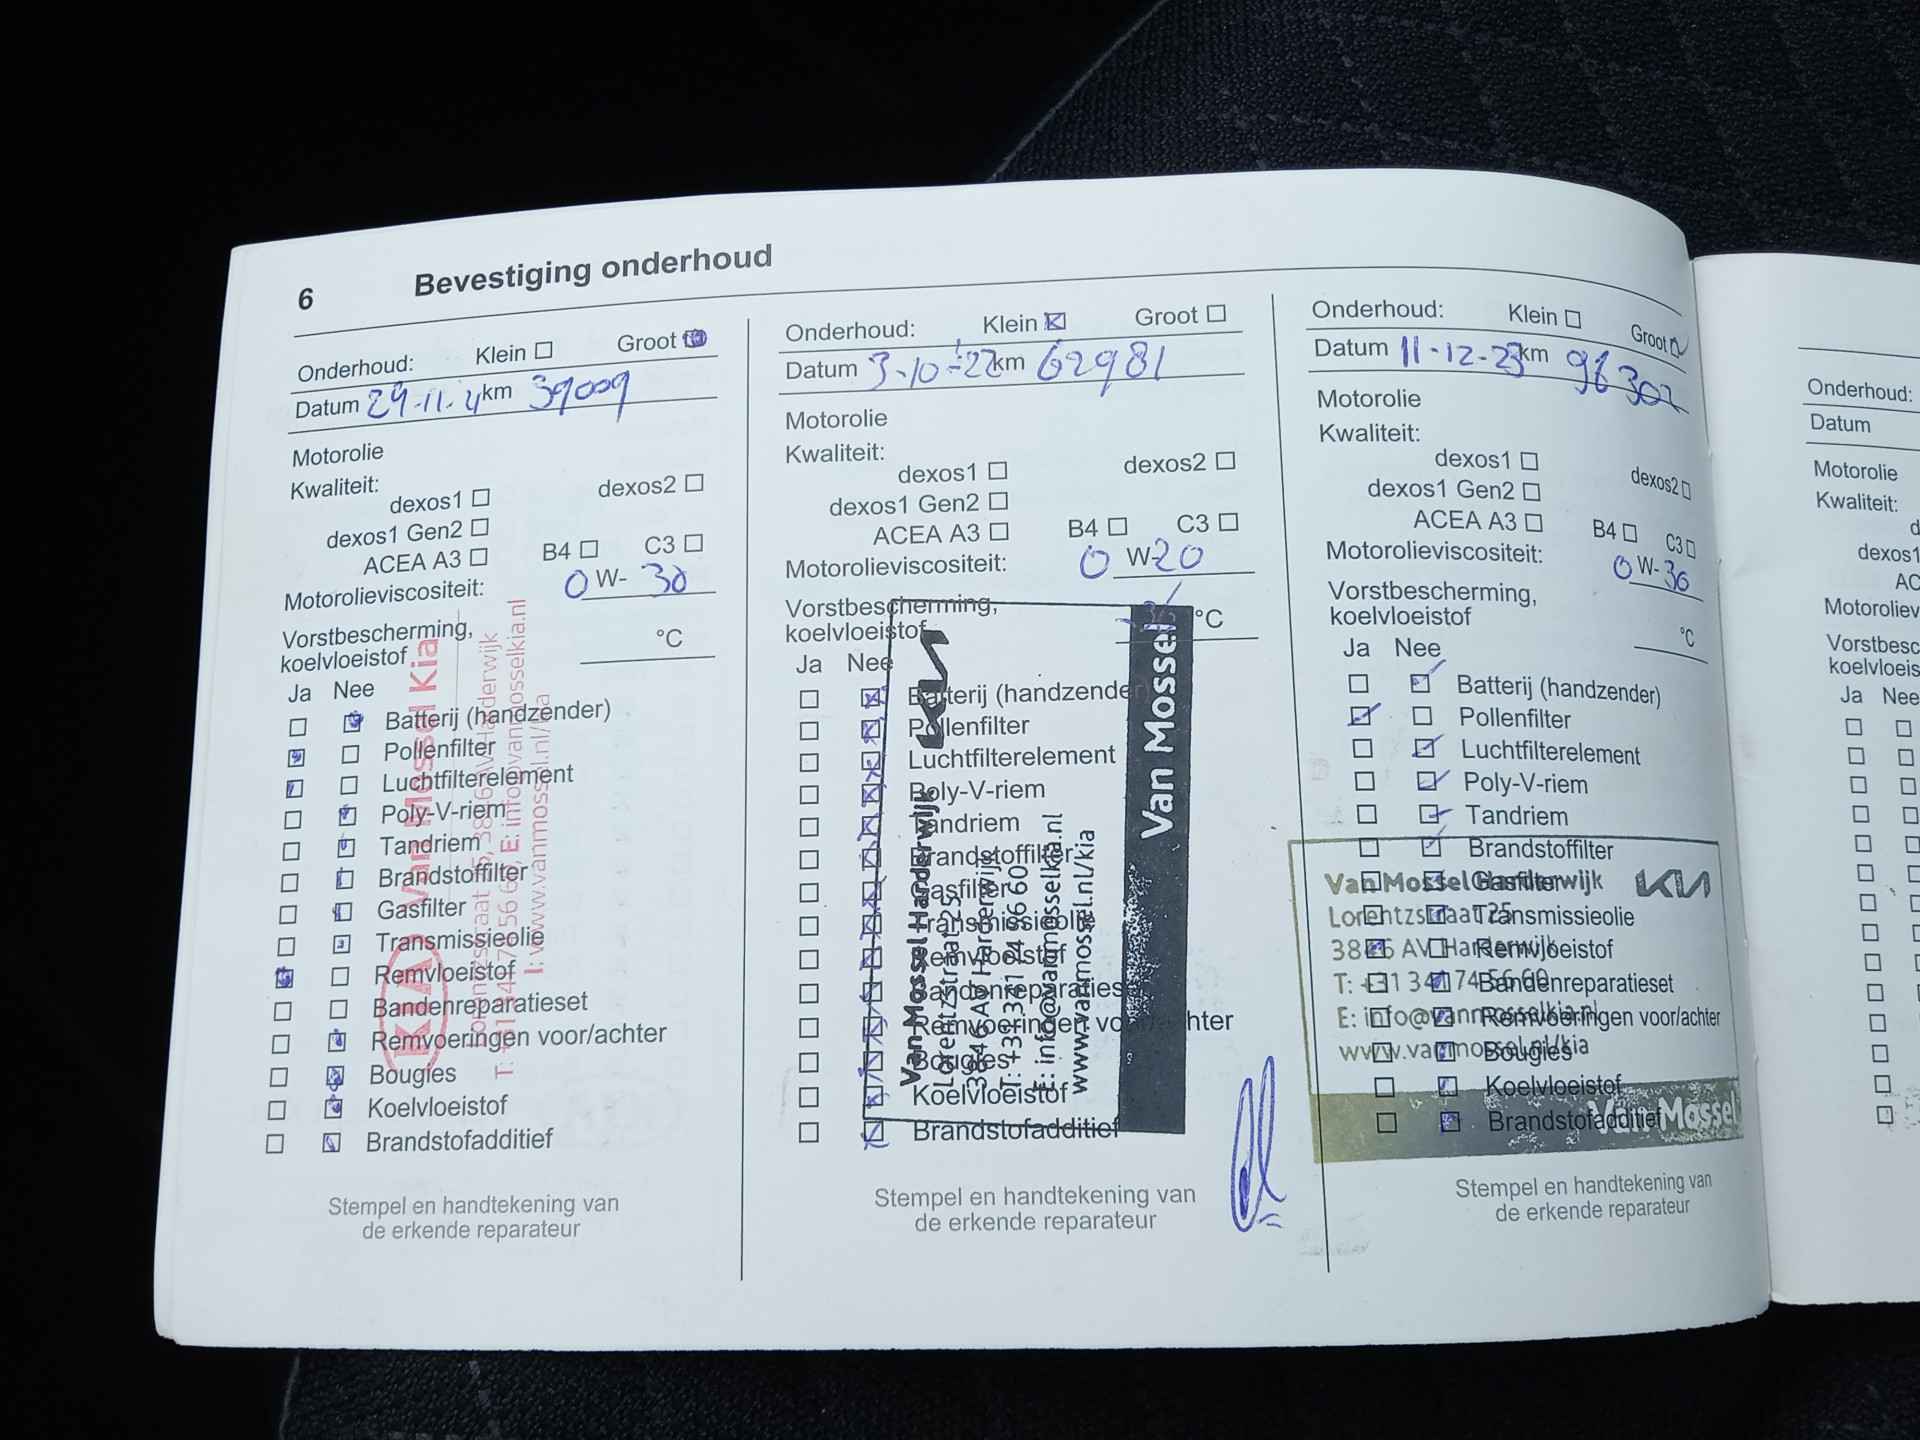 6 Bevestiging onderhoud
Onderhoud: Klein Groot
Datum km 39009
Motorolie
Kwaliteit:
dexos1 dexos2
dexos1 Gen2
ACEA A3 B4 C3
Motorolieviscositeit: 0 W- 30
Vorstbescherming,
koelvloeistof °C
Ja Nee
Batterij (handzender)
Pollenfilter
Luchtfilterelement
Poly-V-riem
Tandriem
Brandstoffilter
Gasfilter
Transmissieolie
Remvloeistof
Bandenreparatieset
Remvoeringen voor/achter
Bougies
Koelvloeistof
Brandstofadditief
KIA Van Mossel Kia
I: www.vanmossel.nl/kia
Stempel en handtekening van
de erkende reparateur
Onderhoud: Klein Groot
Datum 3-10-22 km 62981
Motorolie
Kwaliteit:
dexos1 dexos2
dexos1 Gen2
ACEA A3 B4 C3
Motorolieviscositeit: 0 W-20
Vorstbescherming,
koelvloeistof °C
Ja Nee
Batterij (handzender)
Pollenfilter
Luchtfilterelement
Poly-V-riem
Tandriem
Brandstoffilter
Gasfilter
Transmissieolie
Remvloeistof
Bandenreparatieset
Remvoeringen voor/achter
Bougies
Koelvloeistof
Brandstofadditief
KIA
Van Mossel Harderwijk
Lorentzstraat 25
3846 AV Harderwijk
E: info@vanmosselkia.nl
www.vanmossel.nl/kia
Van Mossel
Stempel en handtekening van
de erkende reparateur
Onderhoud: Klein Groot
Datum 11-12-23 km 96302
Motorolie
Kwaliteit:
dexos1 dexos2
dexos1 Gen2
ACEA A3 B4 C3
Motorolieviscositeit: 0 W-30
Vorstbescherming,
koelvloeistof °C
Ja Nee
Batterij (handzender)
Pollenfilter
Luchtfilterelement
Poly-V-riem
Tandriem
Brandstoffilter
Gasfilter
Transmissieolie
Remvloeistof
Bandenreparatieset
Remvoeringen voor/achter
Bougies
Koelvloeistof
Brandstofadditief
Van Mossel Harderwijk KIA
Lorentzstraat 25
3846 AV Harderwijk
T: +31 341 74 56 60
E: info@vanmosselkia.nl
www.vanmossel.nl/kia
Van Mossel
Stempel en handtekening van
de erkende reparateur
Onderhoud:
Datum
Motorolie
Kwaliteit:
d
dexos1
AC
Motoroliev
Vorstbesc
koelvloeis
Ja Nee